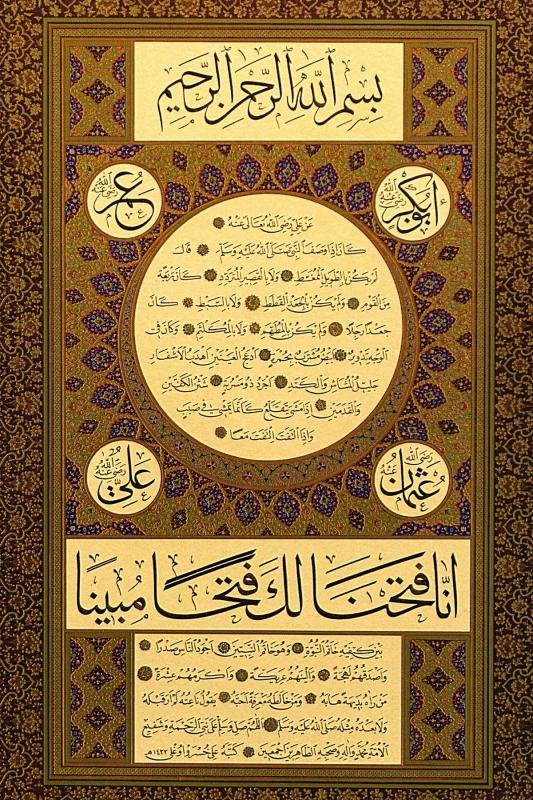 بسم الله الرحمن الرحيم
ابوبكر رضي الله عنه
عمر رضي الله عنه
عن علي رضي الله تعالى عنه
كان اذا وصف النبي صلى الله عليه وسلم قال
لم يكن بالطويل الممغط ولا بالقصير المتردد كان ربعة
من القوم ولم يكن بالجعد القطط ولا بالسبط كان
جعدا رجلا ولم يكن بالمطهم ولا بالمكلثم وكان في
الوجه تدوير ابيض مشرب بحمرة ادعج العينين اهدب الاشفار
جليل المشاش والكتد اجرد ذو مسربة شثن الكفين
والقدمين اذا مشى تقلع كانما يمشي في صبب
واذا التفت التفت معا
عثمان رضي الله عنه
علي رضي الله عنه
انا فتحنا لك فتحا مبينا
بين كتفيه خاتم النبوة وهو خاتم النبيين اجود الناس صدرا
واصدقهم لهجة والينهم عريكة واكرمهم عشرة
من رآه بديهة هابه ومن خالطه معرفة احبه يقول ناعته لم ار قبله
ولا بعده مثله صلى الله عليه وسلم اللهم صل وسلم على نبي الرحمة وشفيع
الامة محمد واله وصحبه الطاهرين اجمعين كتبه علي خسرواوغلى ١٤٢٢هـ